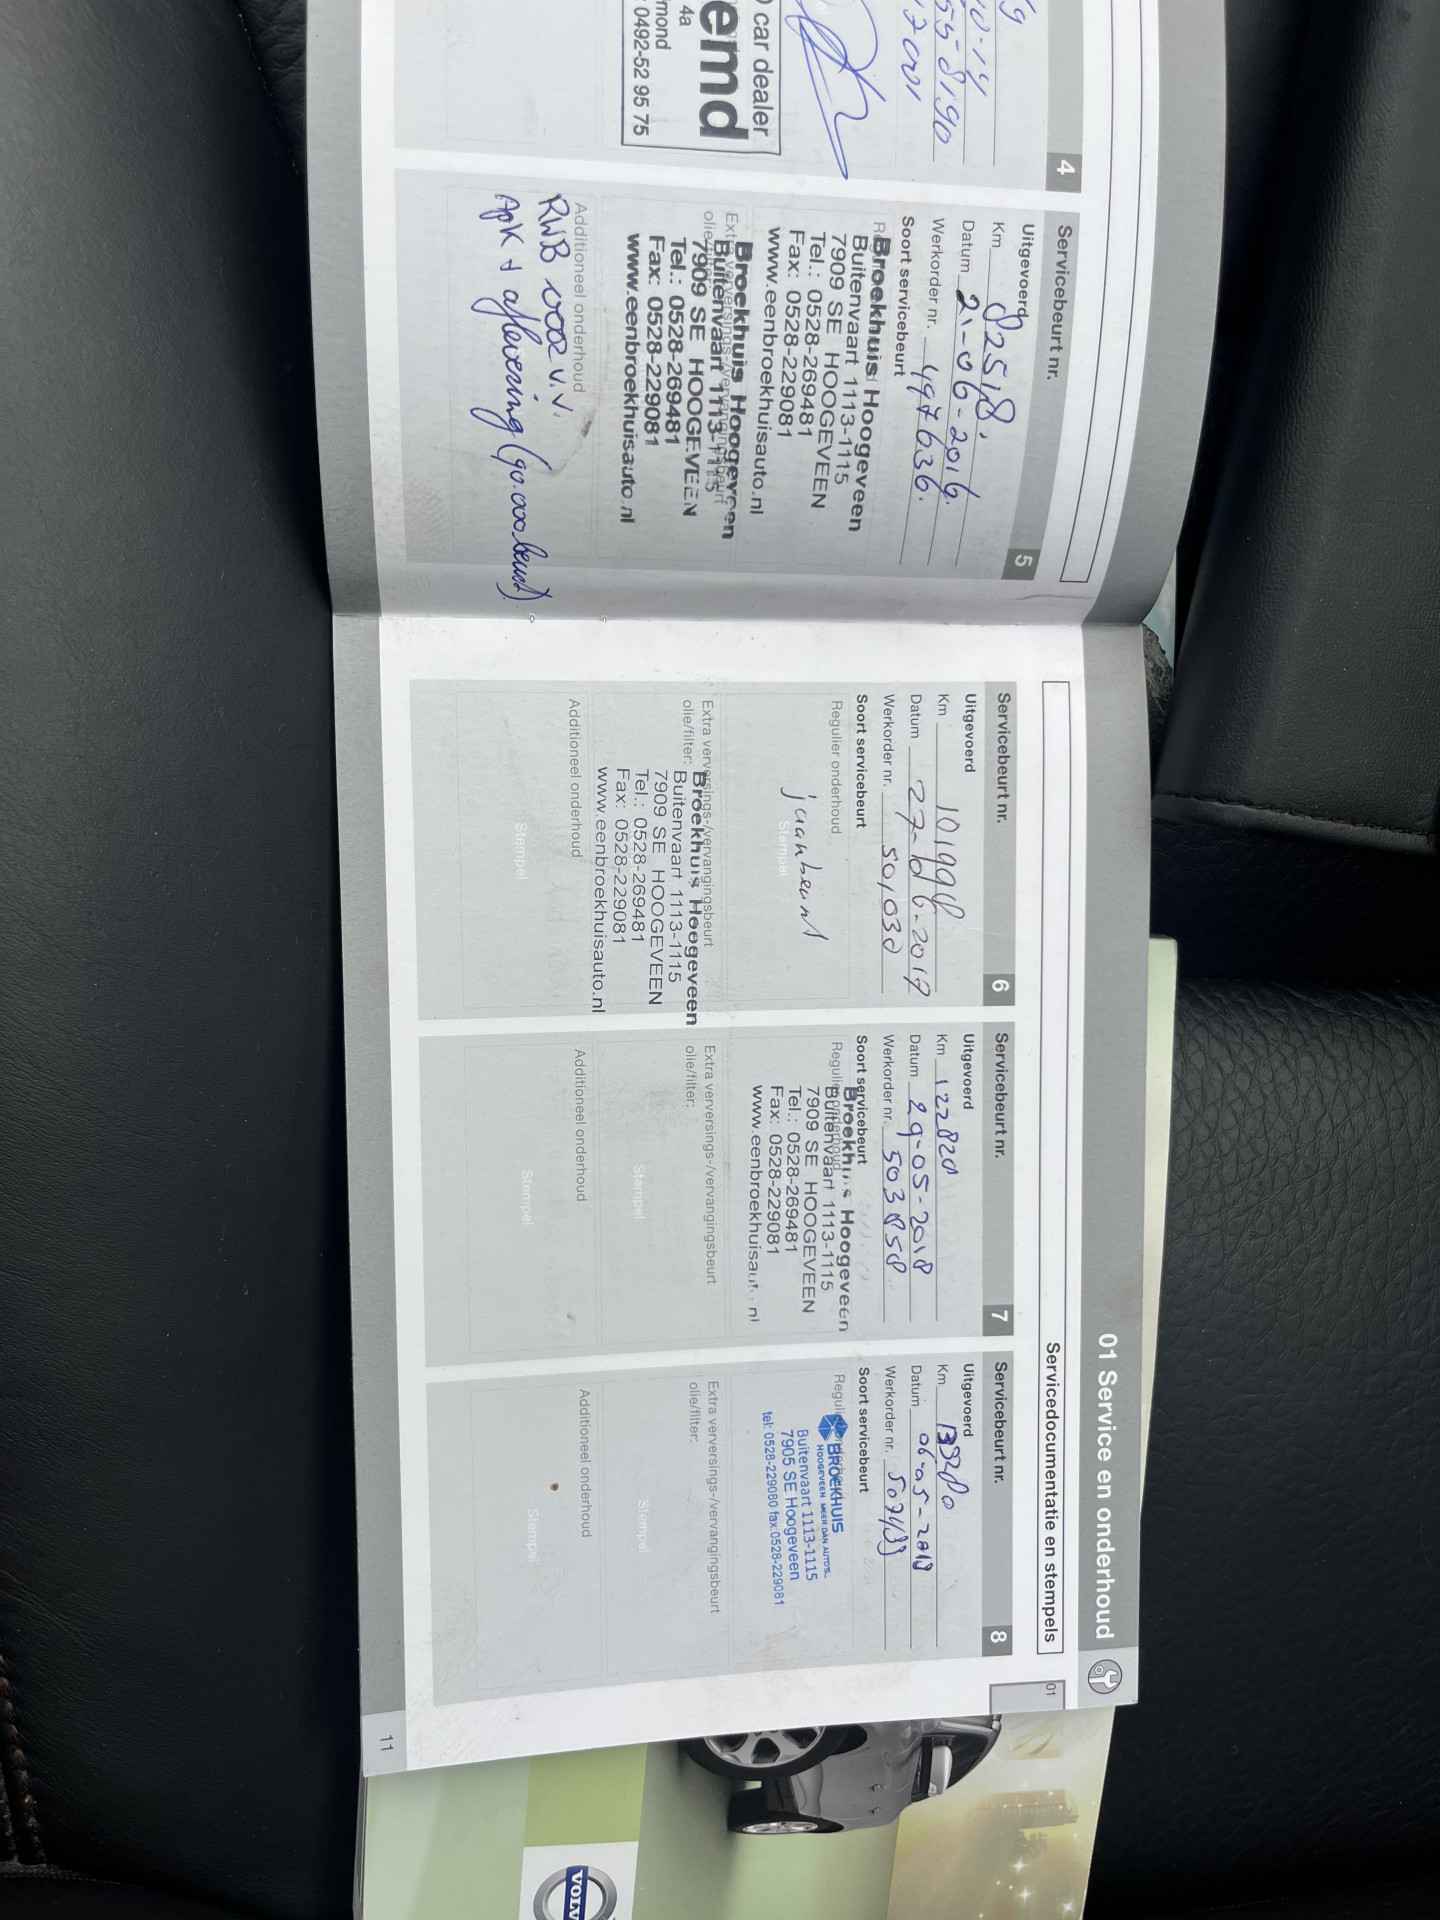 01 Service en onderhoud
Servicedocumentatie en stempels
01
4
car dealer
emd
4a
mond
0492-52 95 75
Servicebeurt nr. 5
Uitgevoerd
Km 82518.
Datum 21-06-2016.
Werkorder nr. 497636.
Soort servicebeurt
Broekhuis Hoogeveen
Buitenvaart 1113-1115
7909 SE HOOGEVEEN
Tel.: 0528-269481
Fax: 0528-229081
www.eenbroekhuisauto.nl
Broekhuis Hoogeveen
Buitenvaart 1113-1115
7909 SE HOOGEVEEN
Tel.: 0528-269481
Fax: 0528-229081
www.eenbroekhuisauto.nl
Additioneel onderhoud
RWB voor v.v.
apk + aflevering (90.000 beurt)
Servicebeurt nr. 6
Uitgevoerd
Km 101998
Datum 27-06-2017
Werkorder nr. 501030
Soort servicebeurt
Regulier onderhoud
Stempel
jaarbeurt
Extra verversings-/vervangingsbeurt
olie/filter:
Broekhuis Hoogeveen
Buitenvaart 1113-1115
7909 SE HOOGEVEEN
Tel.: 0528-269481
Fax: 0528-229081
www.eenbroekhuisauto.nl
Additioneel onderhoud
Stempel
Servicebeurt nr. 7
Uitgevoerd
Km 122820
Datum 29-05-2018
Werkorder nr. 503858
Soort servicebeurt
Regulier onderhoud
Broekhuis Hoogeveen
Buitenvaart 1113-1115
7909 SE HOOGEVEEN
Tel.: 0528-269481
Fax: 0528-229081
www.eenbroekhuisauto.nl
Extra verversings-/vervangingsbeurt
olie/filter:
Stempel
Additioneel onderhoud
Stempel
Servicebeurt nr. 8
Uitgevoerd
Km
Datum 06-05-2019
Werkorder nr. 507433
Soort servicebeurt
BROEKHUIS
HOOGEVEEN MEER DAN AUTO'S..
Buitenvaart 1113-1115
7905 SE Hoogeveen
tel: 0528-229080 fax:0528-229081
Extra verversings-/vervangingsbeurt
olie/filter:
Stempel
Additioneel onderhoud
Stempel
11
VOLV